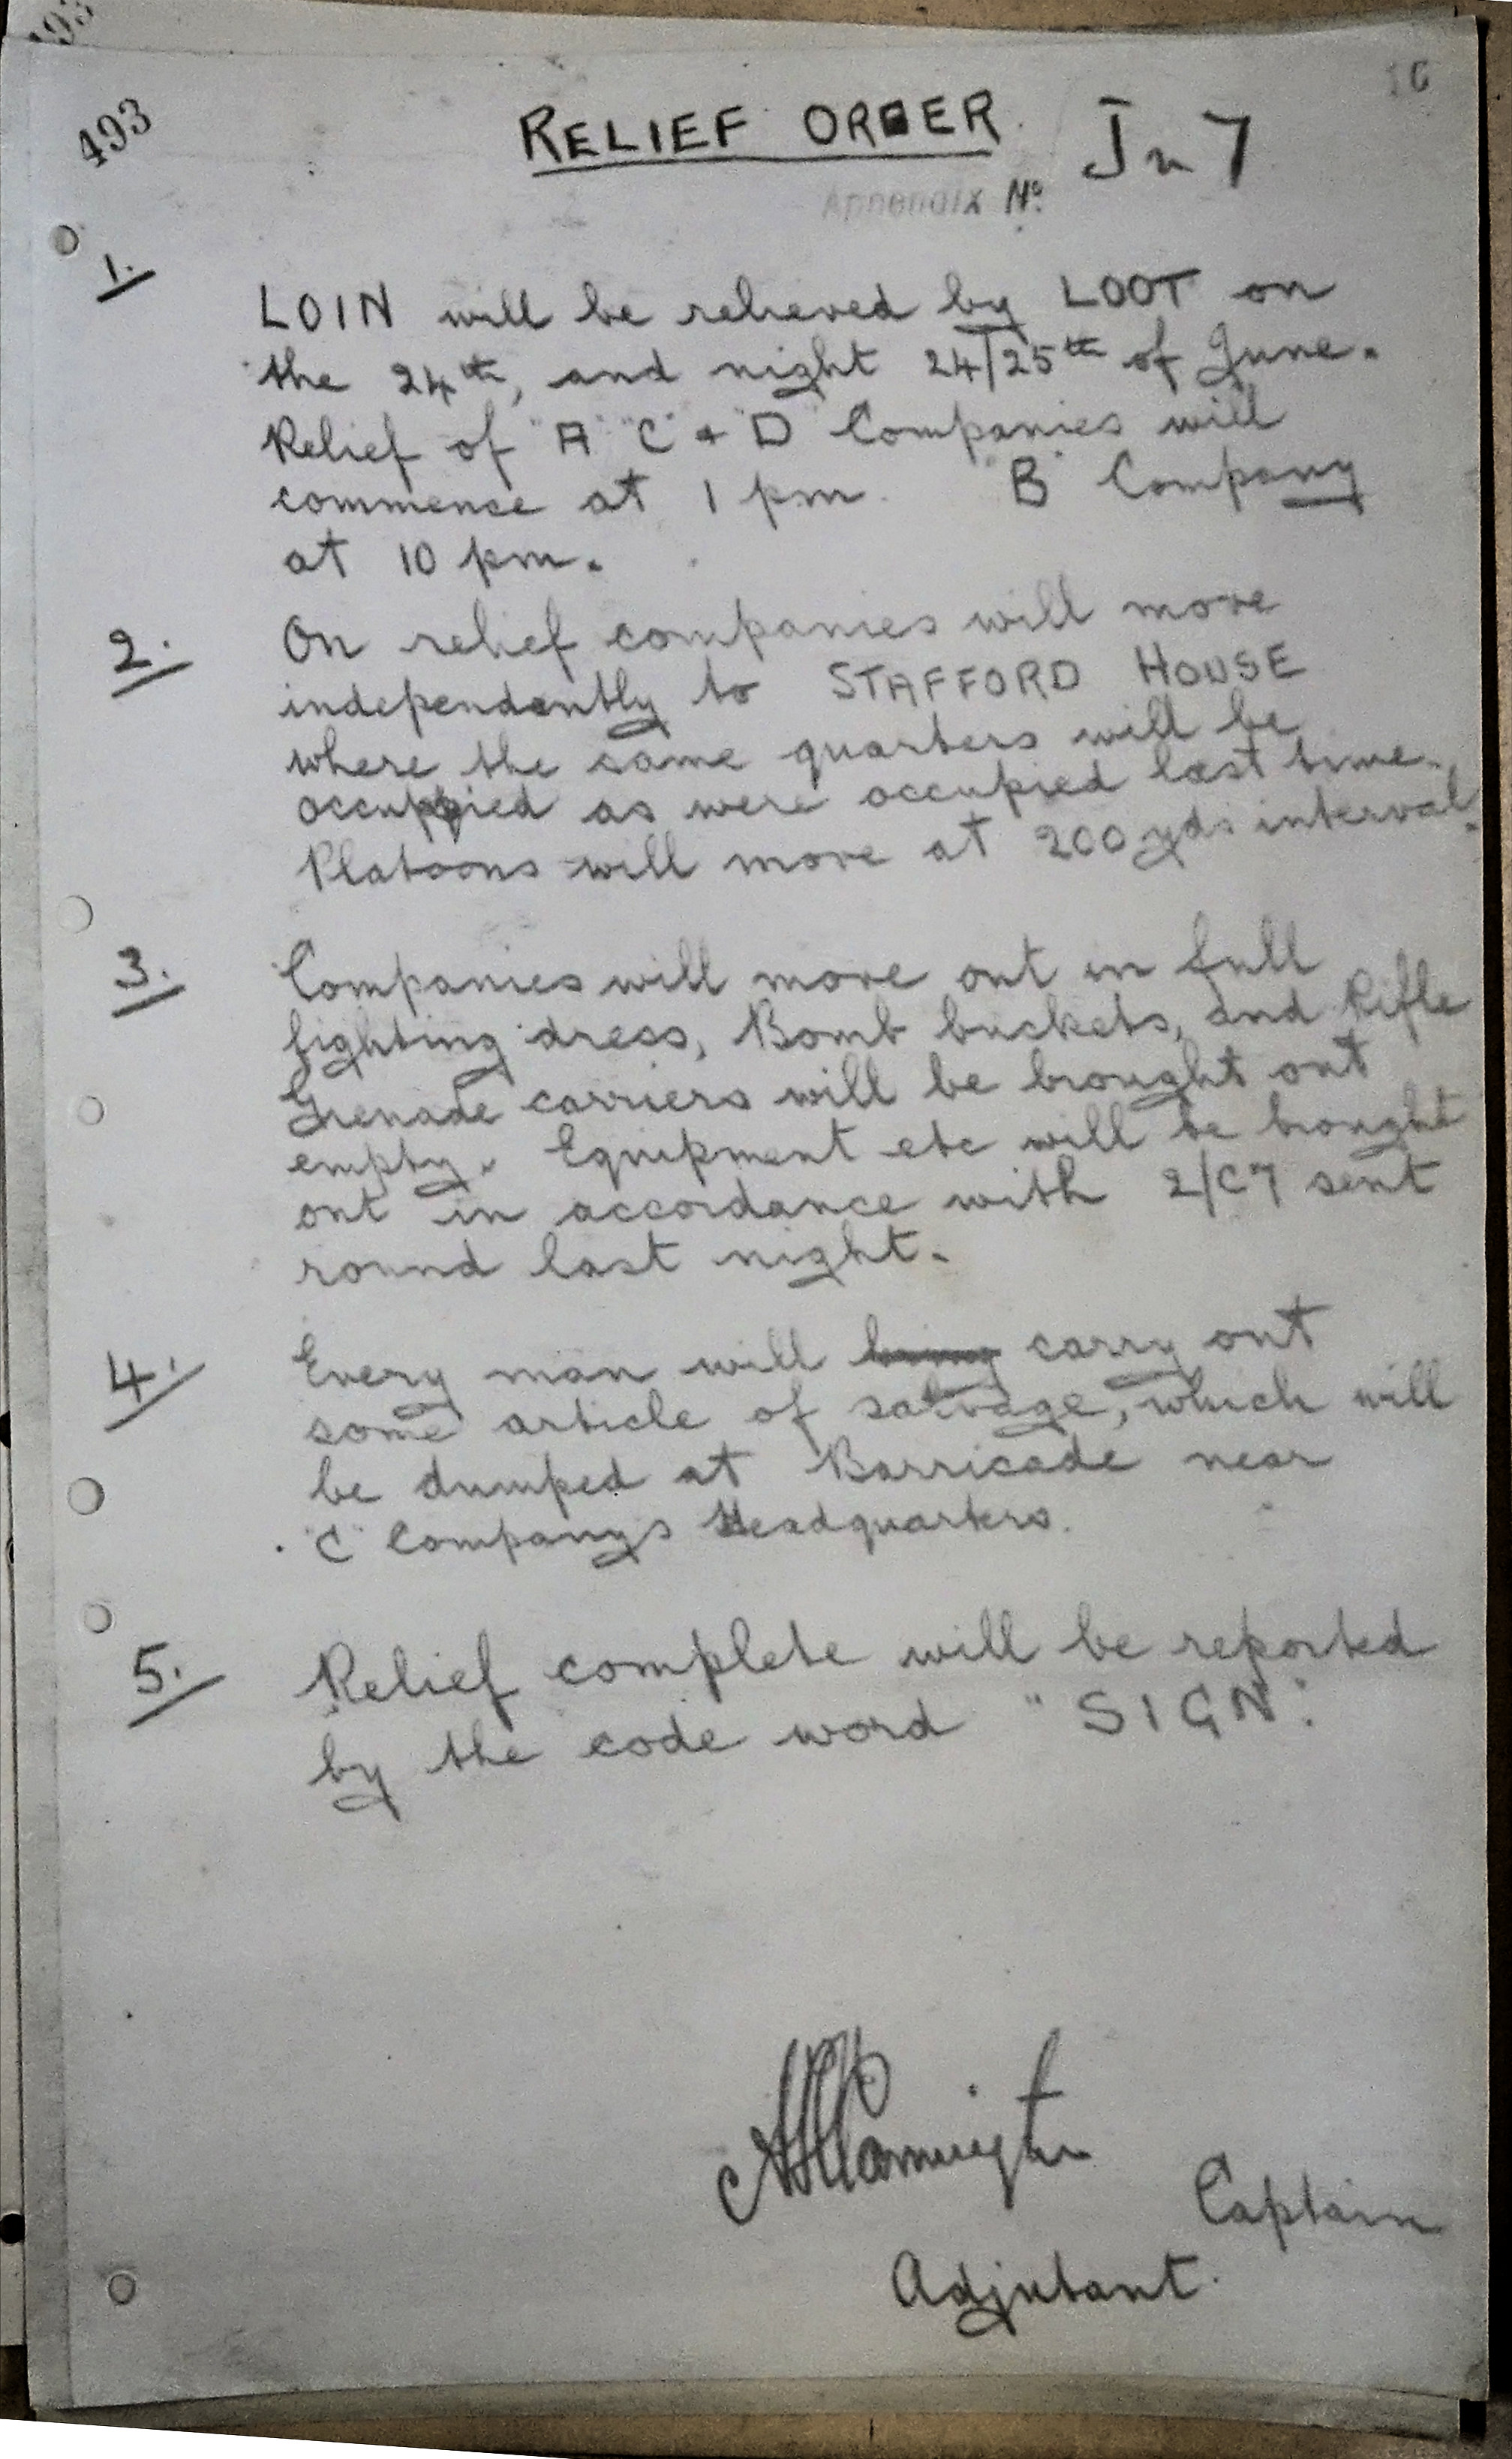 493
10
RELIEF ORDER
Appendix No. Jn 7
1.
LOIN will be relieved by LOOT on
the 24th, and night 24/25th of June.
Relief of "A" "C" & "D" Companies will
commence at 1 pm. "B" Company
at 10 pm.
2.
On relief companies will move
independently to STAFFORD HOUSE
where the same quarters will be
occupied as were occupied last time.
Platoons will move at 200 yds interval.
3.
Companies will move out in full
fighting dress, Bomb buckets, and Rifle
Grenade carriers will be brought out
empty. Equipment etc will be brought
out in accordance with 2/C7 sent
round last night.
4.
Every man will bring carry out
some article of salvage, which will
be dumped at Barricade near
"C" Companys Headquarters.
5.
Relief complete will be reported
by the code word "SIGN".
Captain
Adjutant.